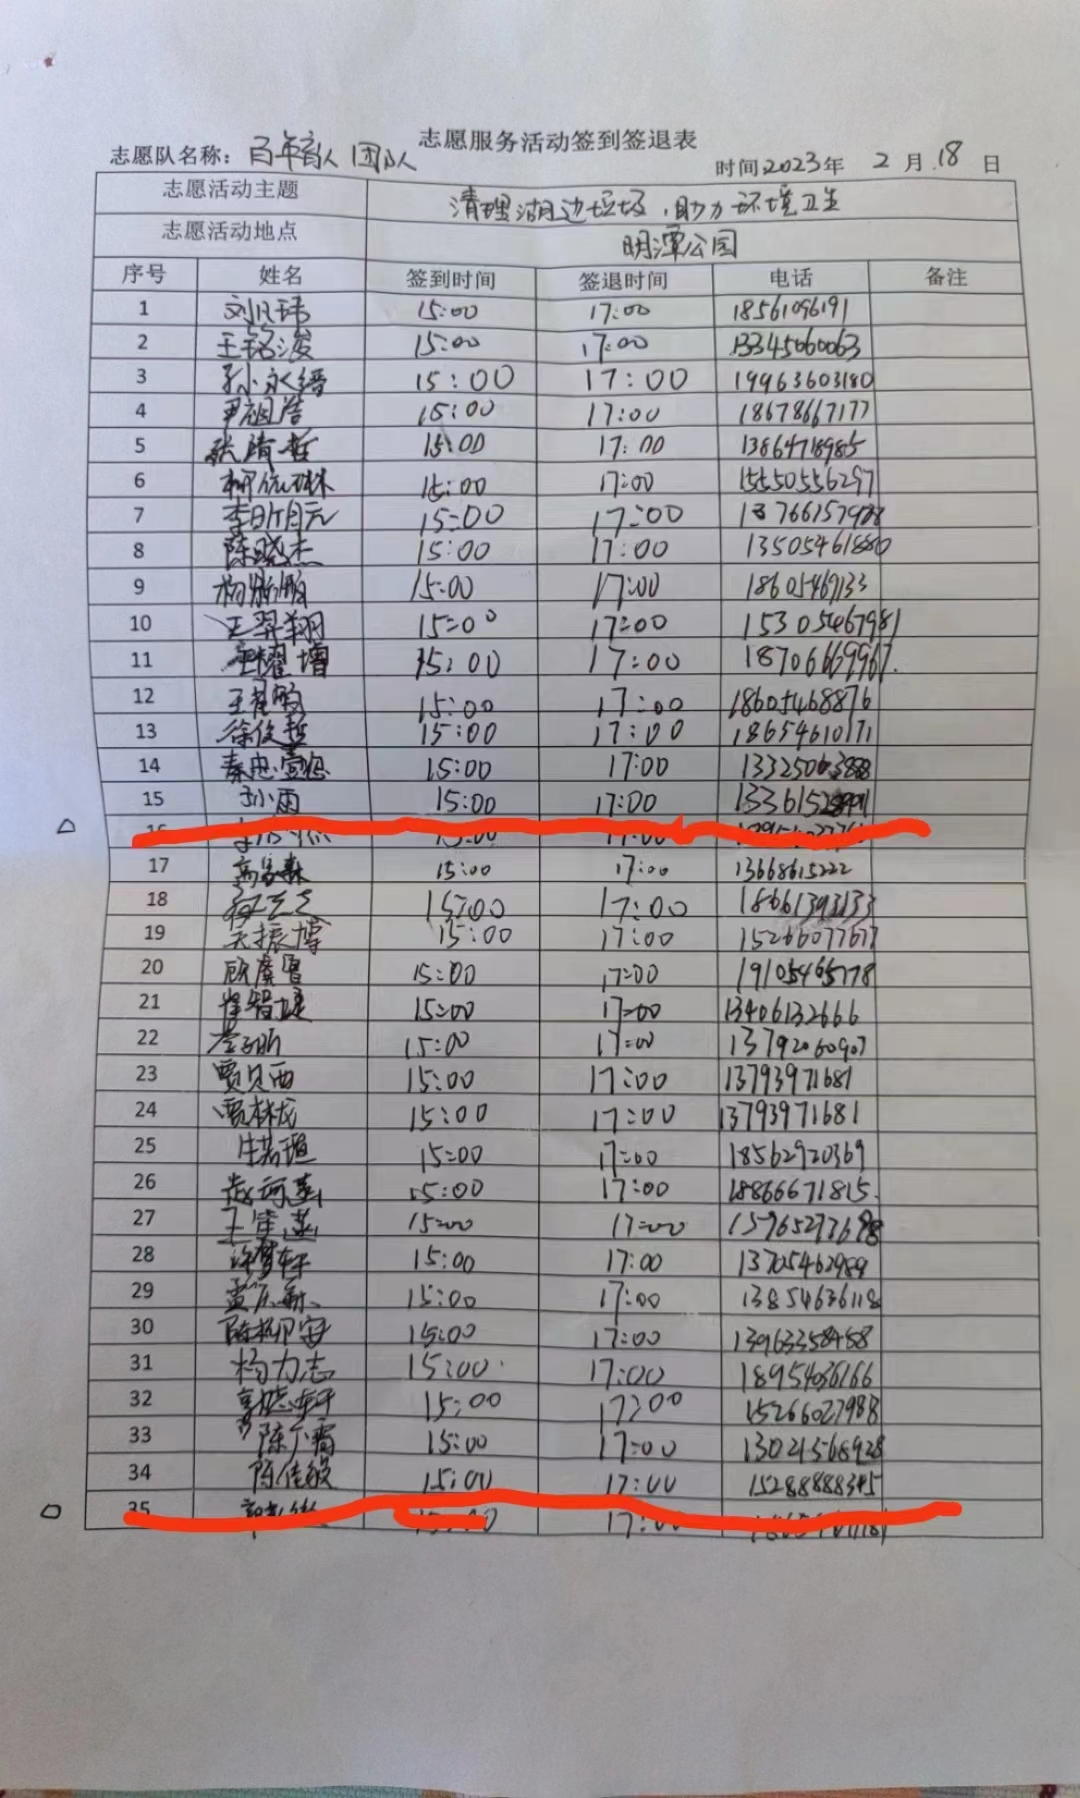 志愿服务活动签到签退表
志愿队名称：百年育人团队 时间2023年 2 月 18 日
志愿活动主题 清理湖边垃圾，助力环境卫生
志愿活动地点 明潭公园
序号 姓名 签到时间 签退时间 电话 备注
1 15:00 17:00 18561096191
2 王铭浚 15:00 17:00 13345060063
3 孙永缙 15:00 17:00 19963603180
4 尹祖浩 15:00 17:00 18678667177
5 张晴哲 15:00 17:00 13864718985
6 柳依琳 15:00 17:00 15550556297
7 15:00 17:00
8 陈晓杰 15:00 17:00 13505461880
9 15:00 17:00 18605469133
10 王羿翔 15:00 17:00 15305467981
11 王耀增 15:00 17:00 18706669967
12 15:00 17:00 18605468876
13 徐俊哲 15:00 17:00 18654610171
14 15:00 17:00
15 孙雨 15:00 17:00
16 15:00 17:00
17 高家森 15:00 17:00 13668615222
18 15:00 17:00 18661393133
19 吴振博 15:00 17:00 15266077677
20 15:00 17:00 19105465778
21 崔智建 15:00 17:00 13406132666
22 李昕 15:00 17:00 13792060907
23 贾贝西 15:00 17:00 13793971681
24 贾林龙 15:00 17:00 13793971681
25 牛若瑄 15:00 17:00 18562920369
26 15:00 17:00 18866671815
27 15:00 17:00
28 许梦轩 15:00 17:00 13705462989
29 15:00 17:00 13854636118
30 陈柳安 15:00 17:00 13963358458
31 杨力志 15:00 17:00 18954036166
32 15:00 17:00 15266027988
33 15:00 17:00 13021568928
34 陈佳毅 15:00 17:00 15288888345
35 17:00